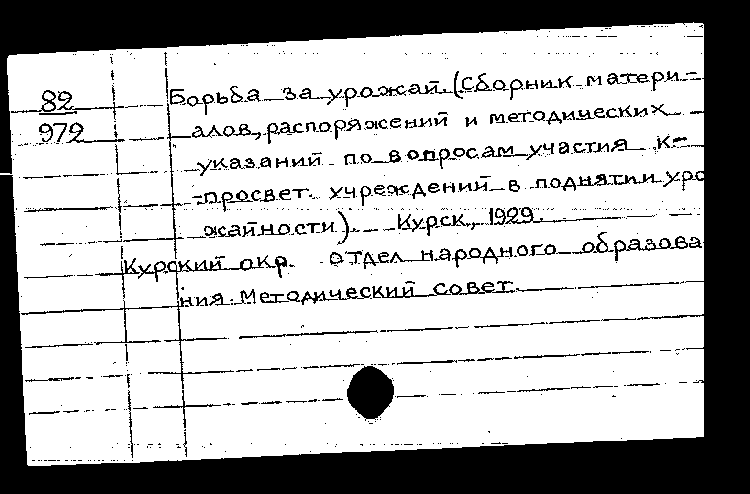 82
972
Борьба за урожай. (Сборник матери-
алов, распоряжений и методических
указаний по вопросам участия к-
-просвет. учреждений в поднятии уро
жайности). Курск, 1929.
Курский окр. отдел народного образова
ния. Методический совет.